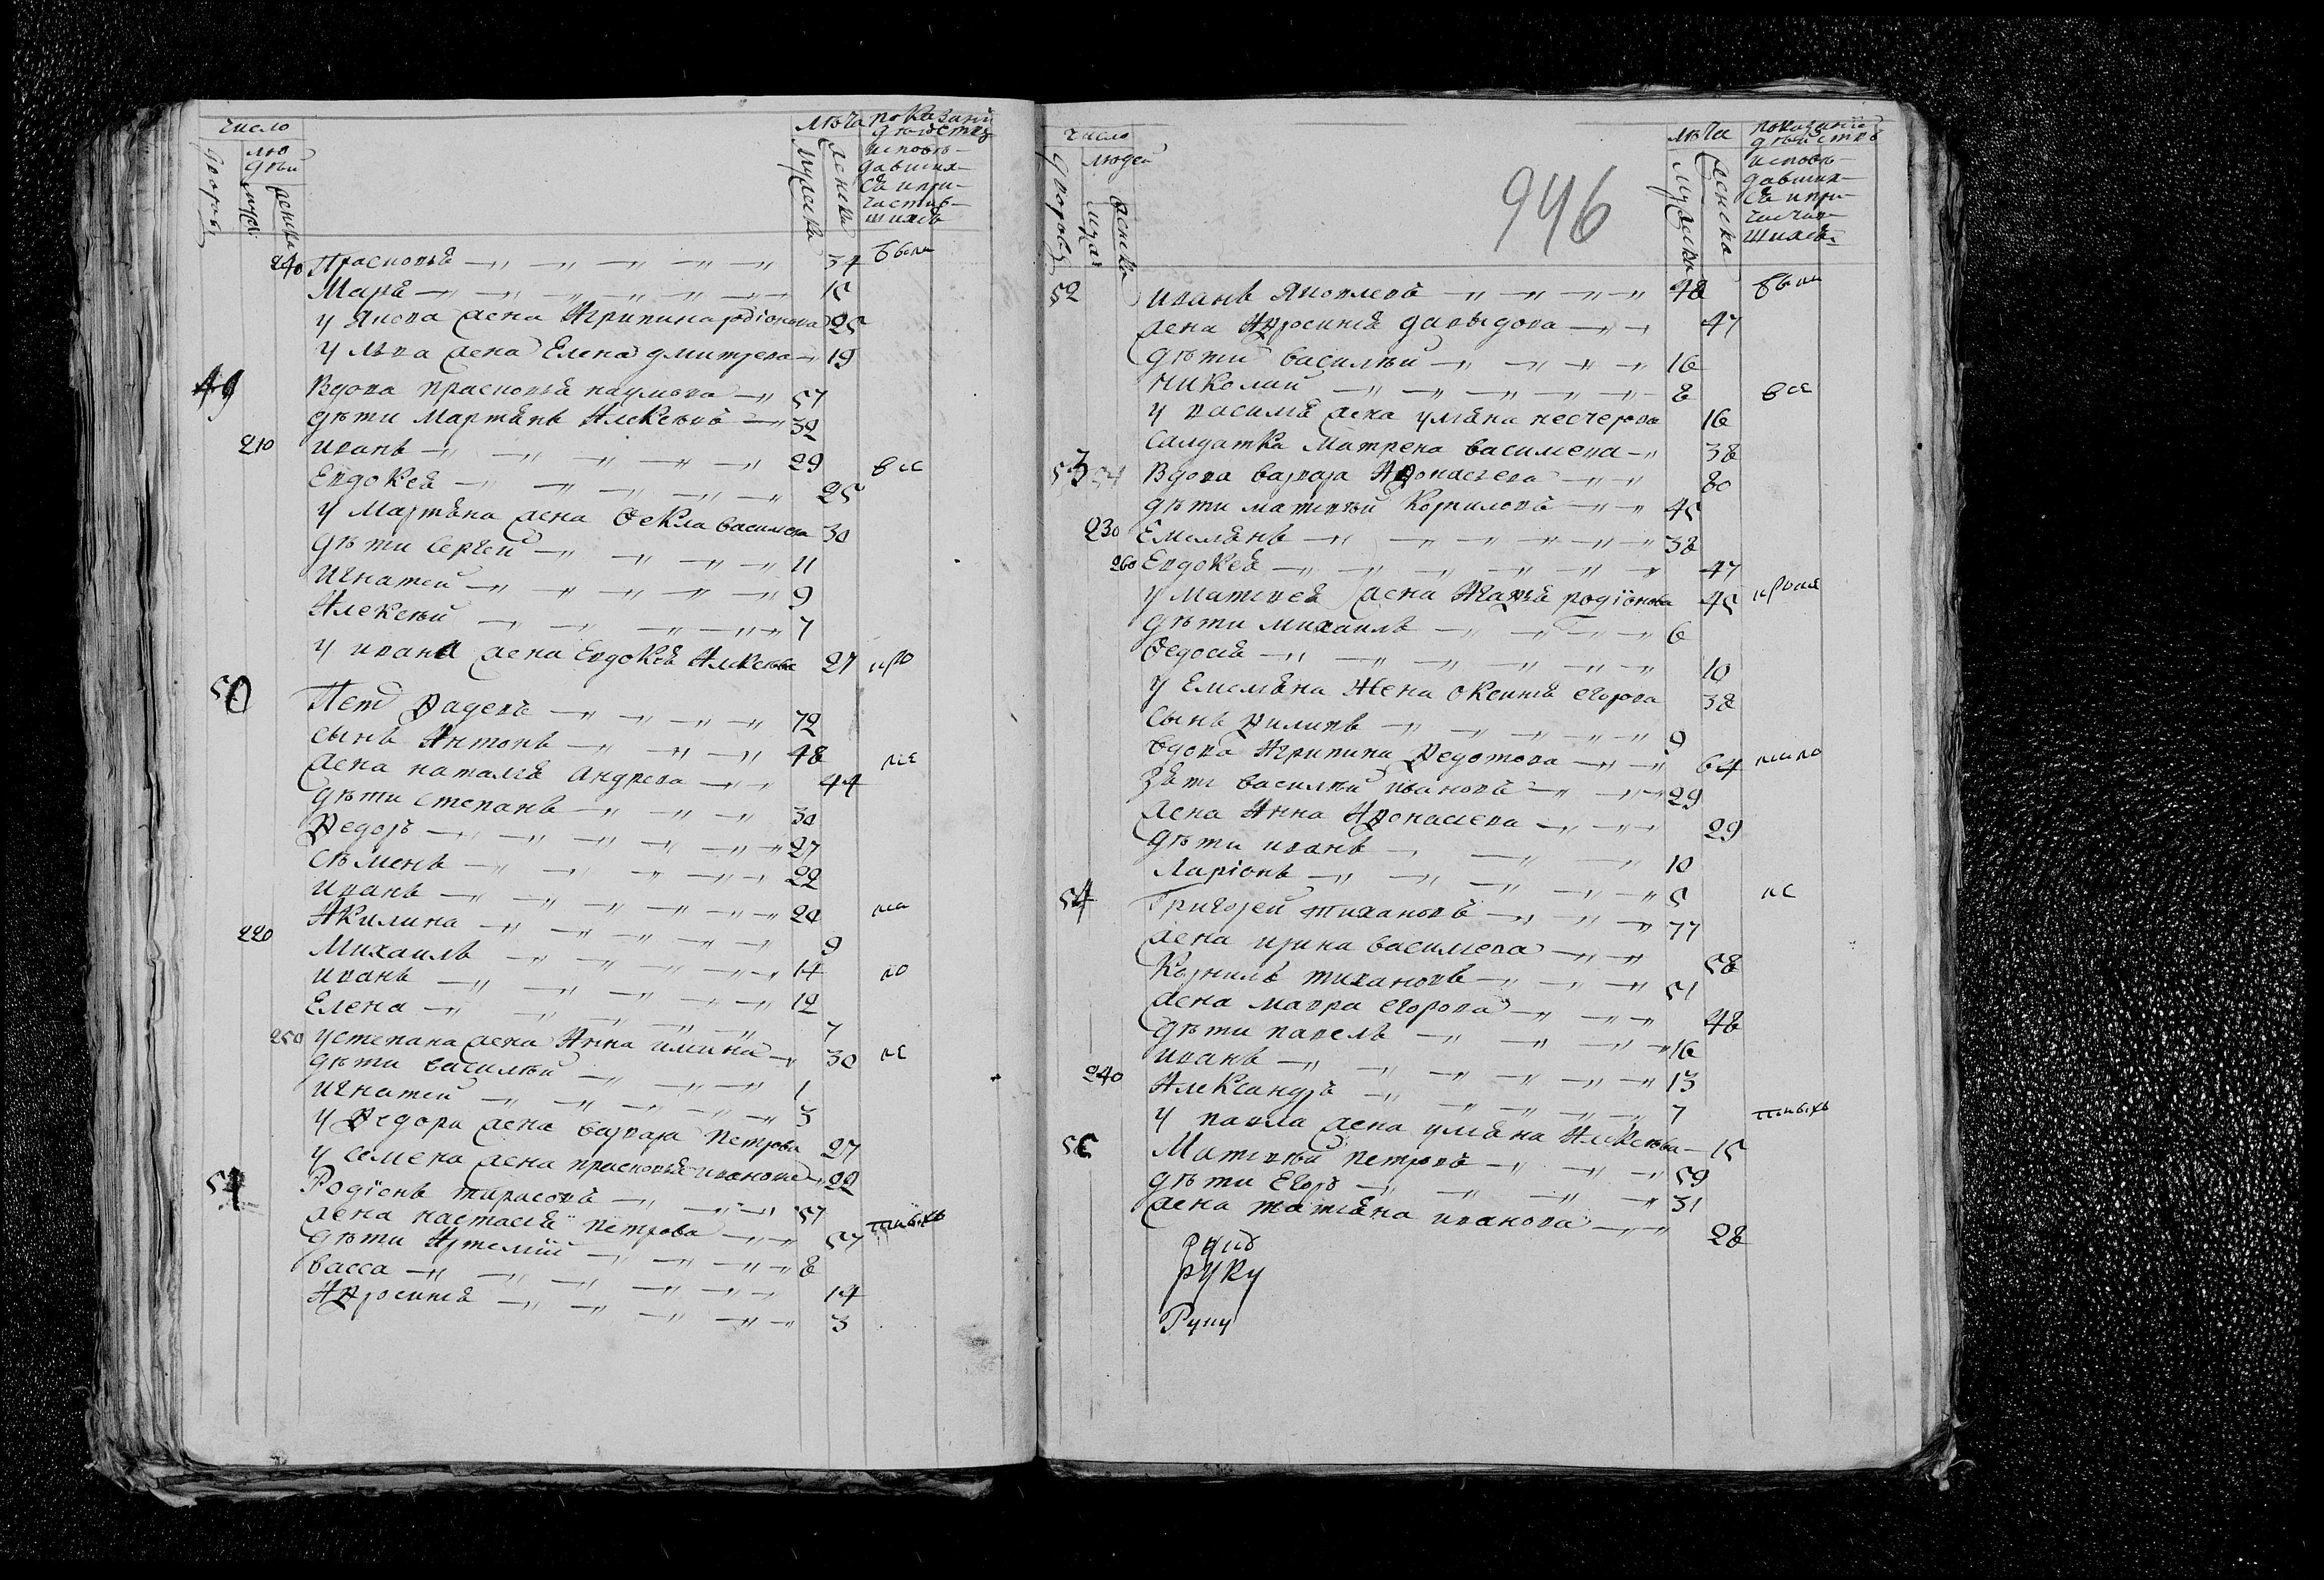 число
дворовъ
лю
дѣи
муже
женска
лѣта
мужеска
женска
показаніи
дѣиствъ
исповѣ-
давших-
ся и при-
частив-
шихся
240 Прасковья 34 были
Марья 15
У Якова жена Агрипина родіонова 25
У Льва жена Елена дмитрева 19
49 Вдова прасковья наумова 57
дѣти Мартынъ Алексѣвъ 32
210 иванъ 29
Евдокея 25 все
У Мартына жена Фекла василева 30
дѣти Сергеи 11
Игнатеи 9
Алексѣи 7
У ивана жена Евдокея Алексѣва 27
50 Пет Фадевъ 72
сынъ Антонъ 48
жена наталья андрева 44
дѣти степанъ 30
Федоръ 27
Сѣменъ 22
иванъ 20
Акилина 9
220 Михаилъ 14
иванъ 12
Елена 7
250 У степана жена Анна илина 30
дѣти василѣи 1
Игнатеи 3
У Федора жена варвара Петрова 27
У Семена жена прасковья иванова 22
51 Родіонъ тарасовъ 57
жена настасья петрова 57
дѣти Артемии 8
васса 14
Афросинья 3
946
число
дворовъ
людеи
мужа
женска
лѣта
мужеска
женска
показаніи
дѣиствъ
исповѣ-
давших-
ся и при-
частив-
шихся
52 иванъ Яковлевъ 48 были
жена Афросинья давыдова 47
дѣти василѣи 16
николаи 8 все
У василья жена ульяна несчерова 16
Салдатка Матрена василева 38
53 Вдова варвара Афонасева 80
дѣти матвѣи Корниловъ 45
230 Емельянъ 38
260 Евдокея 47
У Матвея жена Агафья родіонова 45
дѣти михаилъ 6
Федосья 10
У Емельяна жена оксинья егорова 38
Сынъ Филипъ 9
вдова Агрипина Федотова 64
Зять василѣи ивановъ 29
жена Анна Афонасева 29
дѣти иванъ 10
Ларіонъ 5
54 Григореи тихановъ 77
жена ирина василева 58
Корнилъ тихановъ 51
жена мавра егорова 48
дѣти павелъ 16
иванъ 13
240 Александръ 7
У павла жена ульяна Алексѣва 15
55 Матвѣи петровъ 59
дѣти Егоръ 31
жена татьяна иванова 28
руку